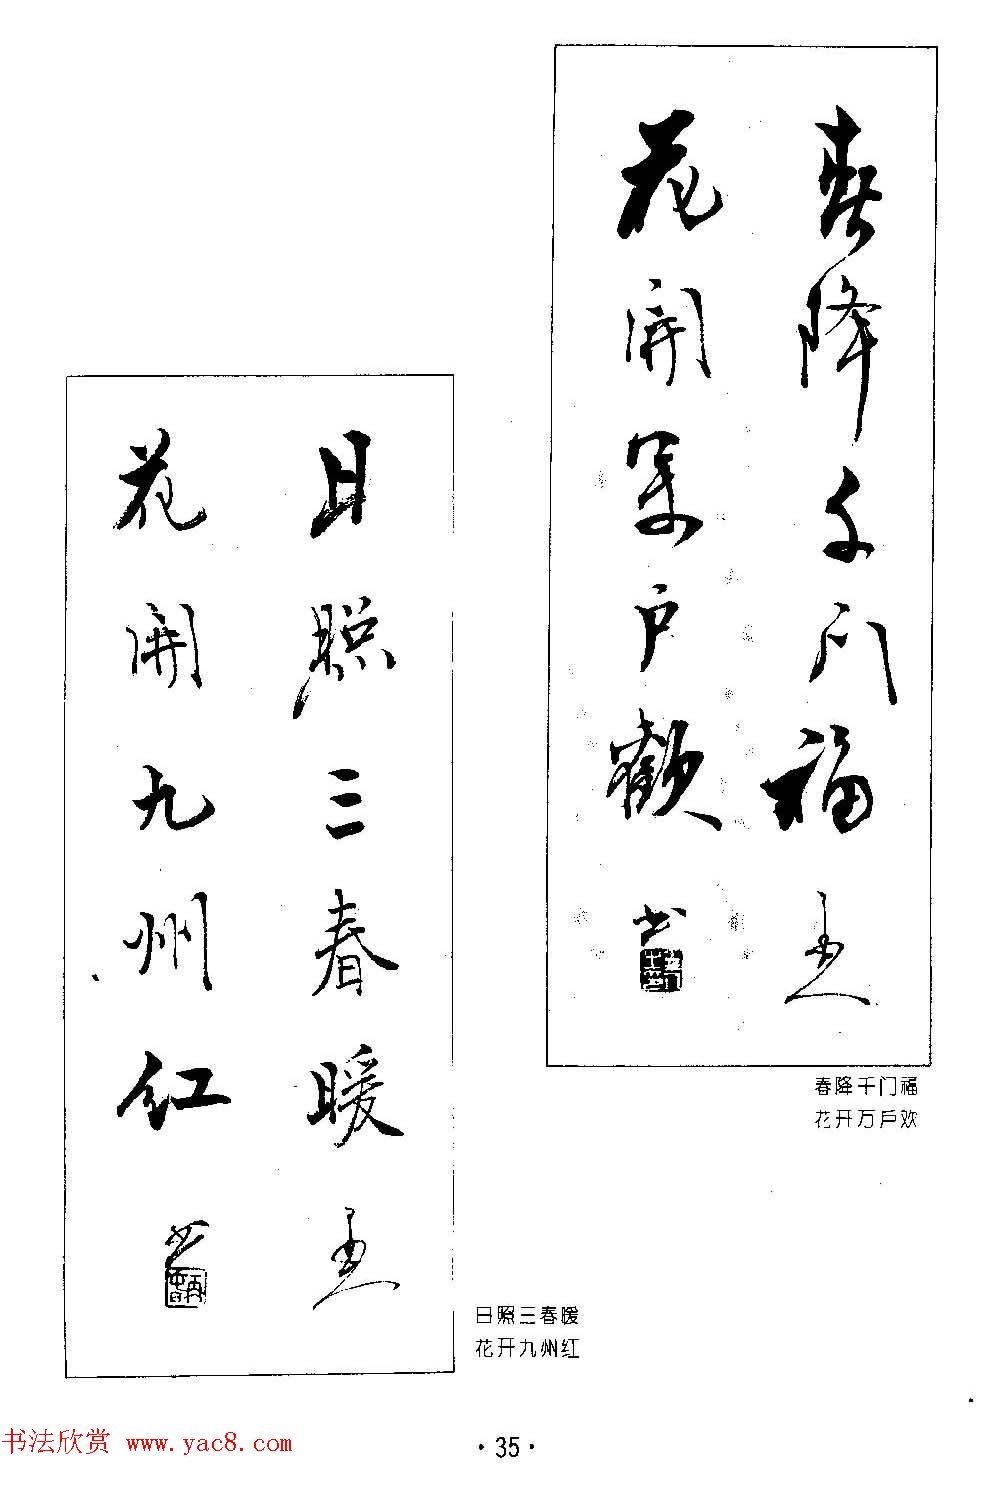 春降千门福
花開万户歡
春降千门福
花开万户欢
日照三春暖
花開九州红
日照三春暖
花开九州红
·35·
书法欣赏 www.yac8.com